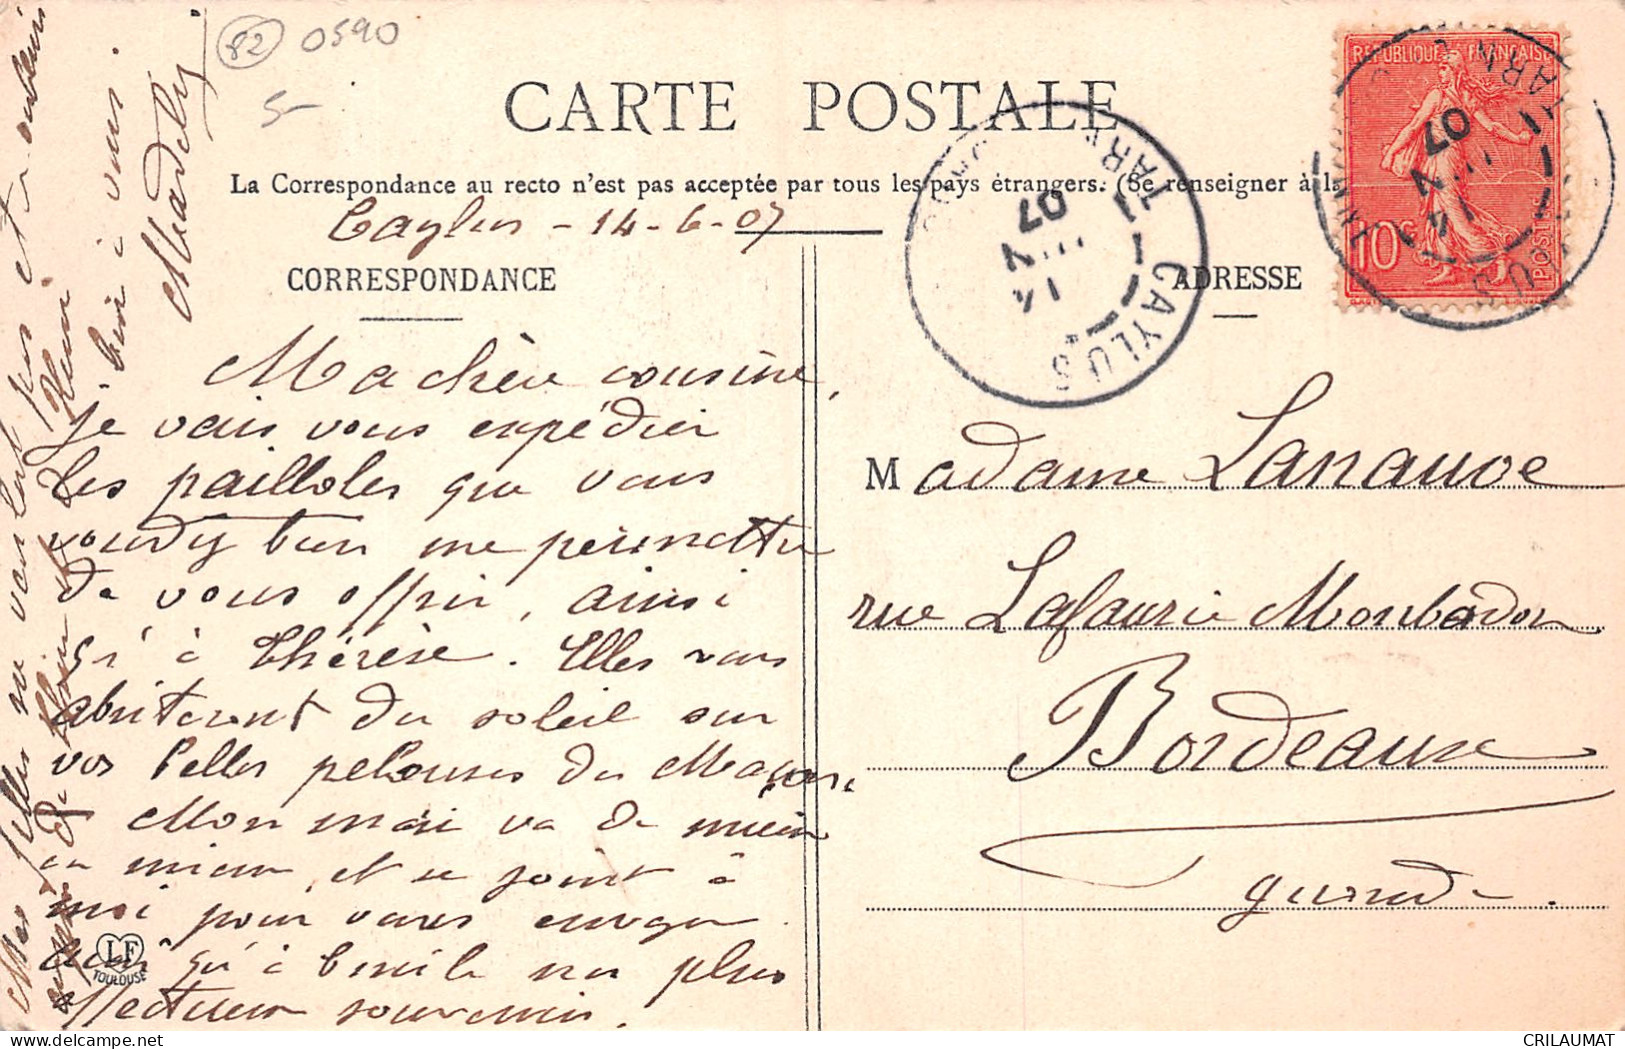 82 0590
5-
CARTE POSTALE
La Correspondance au recto n'est pas acceptée par tous les pays étrangers. (Se renseigner à la
Caylus - 14-6-07
CORRESPONDANCE
ADRESSE
Ma chère cousine,
je vais vous expédier
les pailloles que vous
voudrez bien me permettre
de vous offrir, ainsi
qu'à Thérèse. Elles vous
abriteront du soleil sur
vos belles pelouses du
Mon mari va de mieux
en mieux, et se joint à
moi pour vous envoyer
ainsi qu'à Cécile nos plus
affectueux souvenirs.
Mes filles ne veulent pas être oubliées
bien à vous.
Madame Lanauve
rue Lafaurie Monbadon
Bordeaux
Gironde.
REPUBLIQUE FRANÇAISE
10c
POSTES
CAYLUS TARN
14
07
CAYLUS TARN
14
07
LF
TOULOUSE
CRILAUMAT